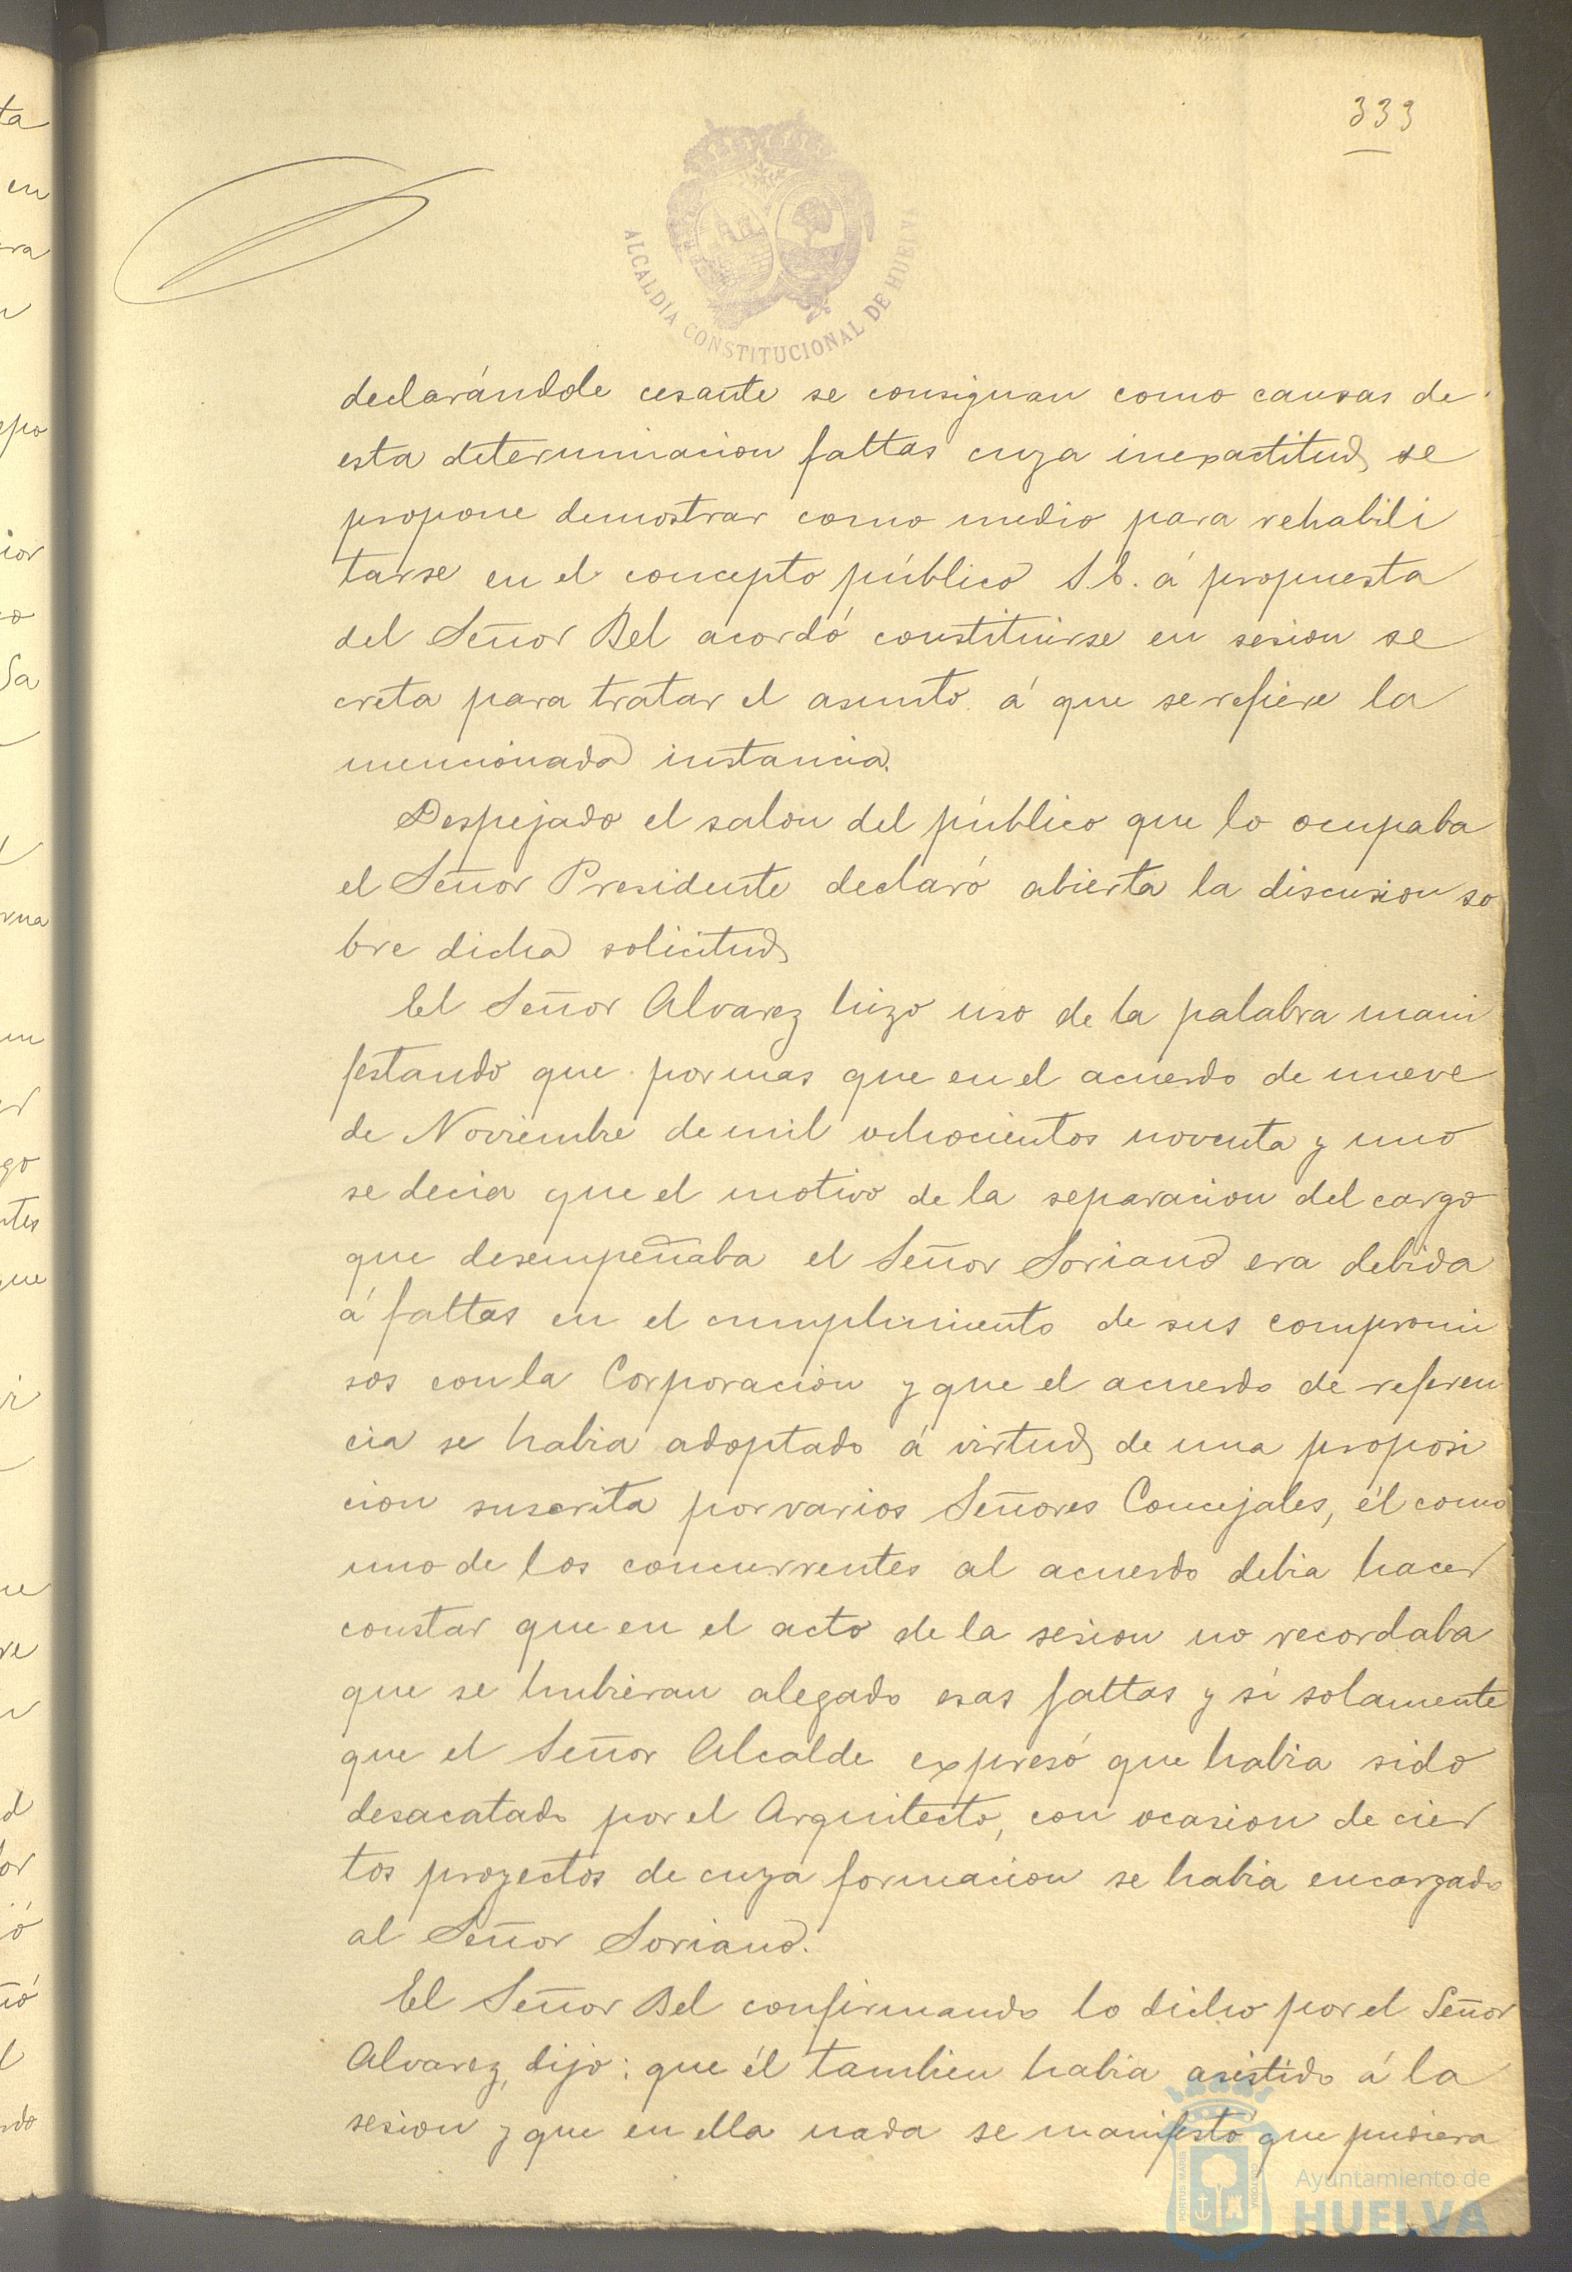 339
ALCALDÍA CONSTITUCIONAL DE HUELVA
declarándole cesante se consignan como causas de
esta determinacion faltas cuya inexactitud se
propone demostrar como medio para rehabili
tarse en el concepto público S.E. á propuesta
del Señor Bel acordó constituirse en sesion se
creta para tratar el asunto á que se refiere la
mencionada instancia.
Despejado el salon del público que lo ocupaba
el Señor Presidente declaró abierta la discusion so
bre dicha solicitud
El Señor Alvarez hizo uso de la palabra mani
festando que por mas que en el acuerdo de nueve
de Noviembre de mil ochocientos noventa y uno
se decia que el motivo de la separacion del cargo
que desempeñaba el Señor Soriano era debida
á faltas en el cumplimiento de sus compromi
sos con la Corporacion y que el acuerdo de referen
cia se habia adoptado á virtud de una proposi
cion suscrita por varios Señores Concejales, él como
uno de los concurrentes al acuerdo debia hacer
constar que en el acto de la sesion no recordaba
que se hubieran alegado esas faltas y sí solamente
que el Señor Alcalde expresó que habia sido
desacatado por el Arquitecto, con ocasion de cier
tos proyectos de cuya formacion se habia encargado
al Señor Soriano.
El Señor Bel confirmando lo dicho por el Señor
Alvarez, dijo: que él tambien habia asistido á la
sesion y que en ella nada se manifestó que pudiera
PORTUS MARIS
CUSTODIA
Ayuntamiento de
HUELVA